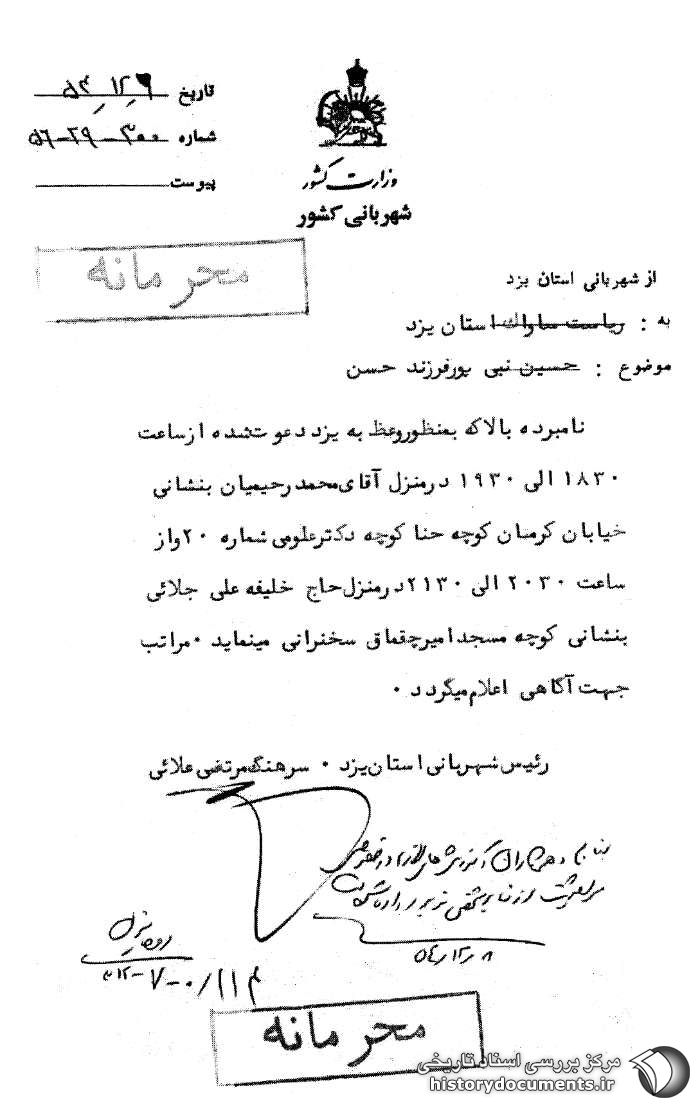 تاریخ ۵۴/۱۲/۶
شماره ۳۰۰-۲۹-۵۶
پیوست
وزارت کشور
شهربانی کشور
محرمانه
از شهربانی استان یزد
به : ریاست ساواک استان یزد
موضوع : حسین نبی پورفرزند حسن
نامبرده بالاکه بمنظوروعظ به یزد دعوت شده ازساعت
۱۸۳۰ الی ۱۹۳۰ درمنزل آقای محمدرحیمیان بنشانی
خیابان کرمان کوچه حنا کوچه دکترعلومی شماره ۲۰ واز
ساعت ۲۰۳۰ الی ۲۱۳۰ درمنزل حاج خلیفه علی جلائی
بنشانی کوچه مسجد امیرچقماق سخنرانی مینماید ۰ مراتب
جهت آگاهی اعلام میگردد ۰
رئیس شهربانی استان یزد ۰ سرهنگ مرتضی علائی
محرمانه
مرکز بررسی اسناد تاریخی
historydocuments.ir